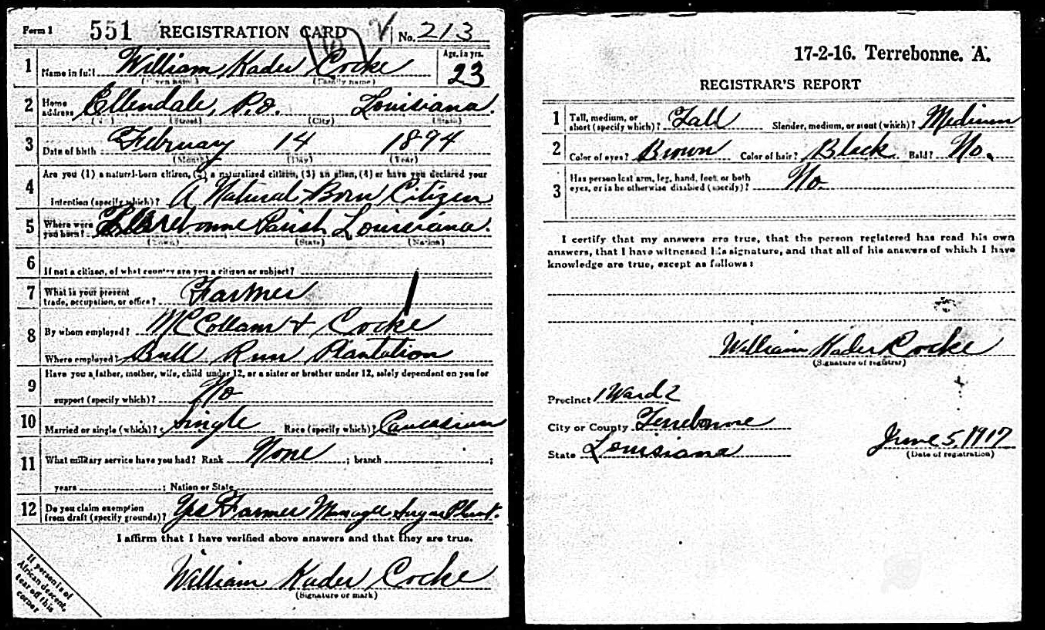 Form 1 551 REGISTRATION CARD No. 213
1 Name in full William Kader Cocke Age, in yrs. 23
(Given name) (Family name)
2 Home address Ellendale, P.O. Louisiana.
(No.) (Street) (City) (State)
3 Date of birth February 14 1894
(Month) (Day) (Year)
4 Are you (1) a natural-born citizen, (2) a naturalized citizen, (3) an alien, (4) or have you declared your
intention (specify which)? A Natural Born Citizen
5 Where were you born? Terrebonne Parish Louisiana.
(Town) (State) (Nation)
6 If not a citizen, of what country are you a citizen or subject?
7 What is your present trade, occupation, or office? Farmer
8 By whom employed? McCollam & Cocke
Where employed? Bull Run Plantation
9 Have you a father, mother, wife, child under 12, or a sister or brother under 12, solely dependent on you for
support (specify which)? No
10 Married or single (which)? Single Race (specify which)? Caucasian
11 What military service have you had? Rank None ; branch ;
years ; Nation or State
12 Do you claim exemption from draft (specify grounds)? Yes Farmer Sugar Plant.
I affirm that I have verified above answers and that they are true.
William Kader Cocke
(Signature or mark)
If person is of
African descent,
tear off this
corner
17-2-16. Terrebonne. A.
REGISTRAR'S REPORT
1 Tall, medium, or short (specify which)? Tall Slender, medium, or stout (which)? Medium
2 Color of eyes? Brown Color of hair? Black Bald? No.
3 Has person lost arm, leg, hand, feet, or both
eyes, or is he otherwise disabled (specify)? No
I certify that my answers are true, that the person registered has read his own
answers, that I have witnessed his signature, and that all of his answers of which I have
knowledge are true, except as follows:
William Kader Cocke
(Signature of registrar)
Precinct 1 Ward 2
City or County Terrebonne
State Louisiana June 5, 1917
(Date of registration)